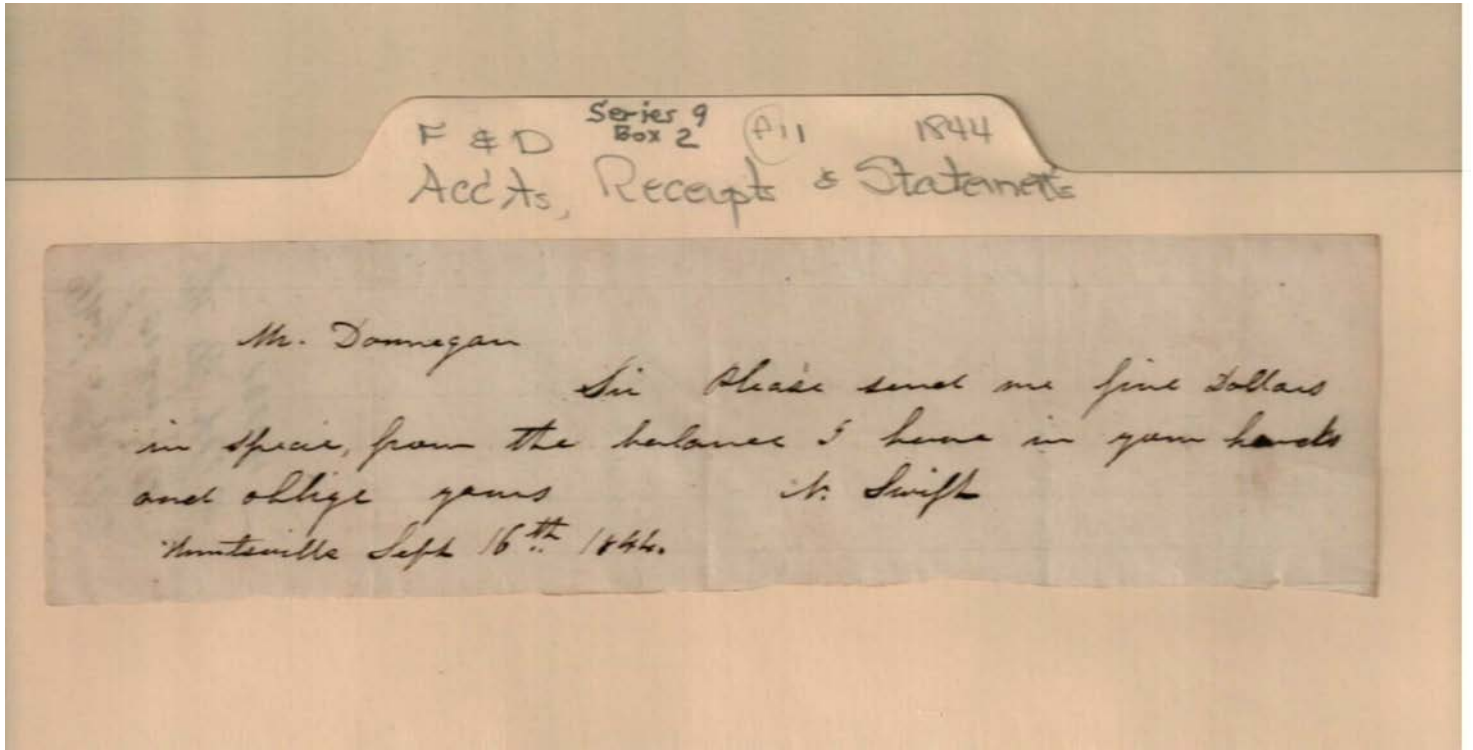 Series 9
F & D Box 2 A11 1844
Acc'ts, Receipts & Statements
Mr. Donnegan
Sir Please send me five Dollars
in specie, from the balance I have in your hands
and oblige yours N. Swift
Huntsville Sept 16th 1844.